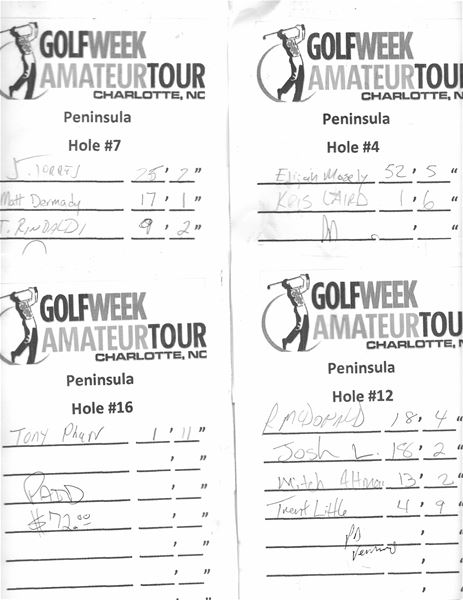 GOLFWEEK
AMATEURTOUR
CHARLOTTE, NC
Peninsula
Hole #7
J. TORRES 25' 2"
Matt Dermady 17' 1"
T. RINDALDI 9' 2"
GOLFWEEK
AMATEURTOU
CHARLOTTE, N
Peninsula
Hole #4
Elijah Mosely 52' 5"
KRIS LAIRD 1' 6"
' "
GOLFWEEK
AMATEURTOUR
CHARLOTTE, NC
Peninsula
Hole #16
Tony Phan 1' 11"
' "
PAID ' "
$72.00 ' "
' "
' "
GOLFWEEK
AMATEURTOU
CHARLOTTE, N
Peninsula
Hole #12
R MCDONALD 18' 4"
Josh L. 18' 2"
Mitch Altman 13' 2"
Trent Little 4' 9"
' "
' "